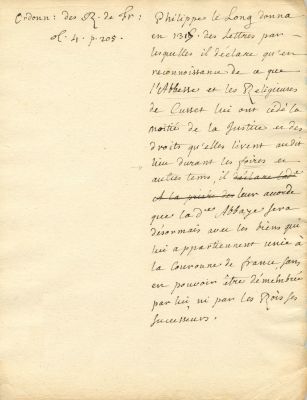 Ordonn: des R. de Fr:
ol. 4. p. 205.
Philippe le Long donna
en 1318. des Lettres par
lesquelles il déclare qu'en
reconnoissance de ce que
l'Abbesse et les Religieuses
de Cusset lui ont cédé la
moitié de la Justice et des
droits qu'elles livent audit
lieu durant les foires et
autres tems, il déclare led.
A la priere des leur accorde
que la d.e Abbaye sera
désormais avec les biens qui
lui appartiennent unie à
la Couronne de france, sans
en pouvoir être démembrée
par lui, ni par les Rois ses
successeurs.